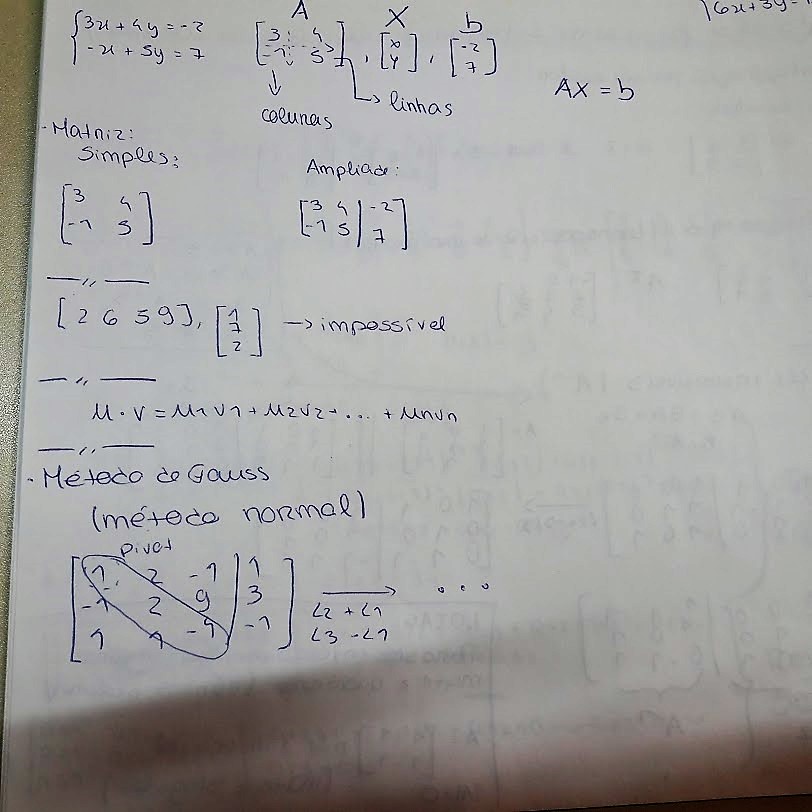 3x + 4y = -2
-x + 5y = 7
A X b
[3 4 -1 5], [x y], [-2 7]
AX = b
colunas
linhas
- Matriz:
Simples:
Ampliada:
[3 4
-1 5]
[3 4 | -2
-1 5 | 7]
— " —
[2 6 5 9], [1 7 2] → impossível
— " —
u · v = u1v1 + u2v2 + ... + unvn
— " —
- Método de Gauss
(método normal)
pivot
[1 2 -1 | 1
-1 2 9 | 3
1 1 -1 | -1]
→ ...
L2 + L1
L3 - L1